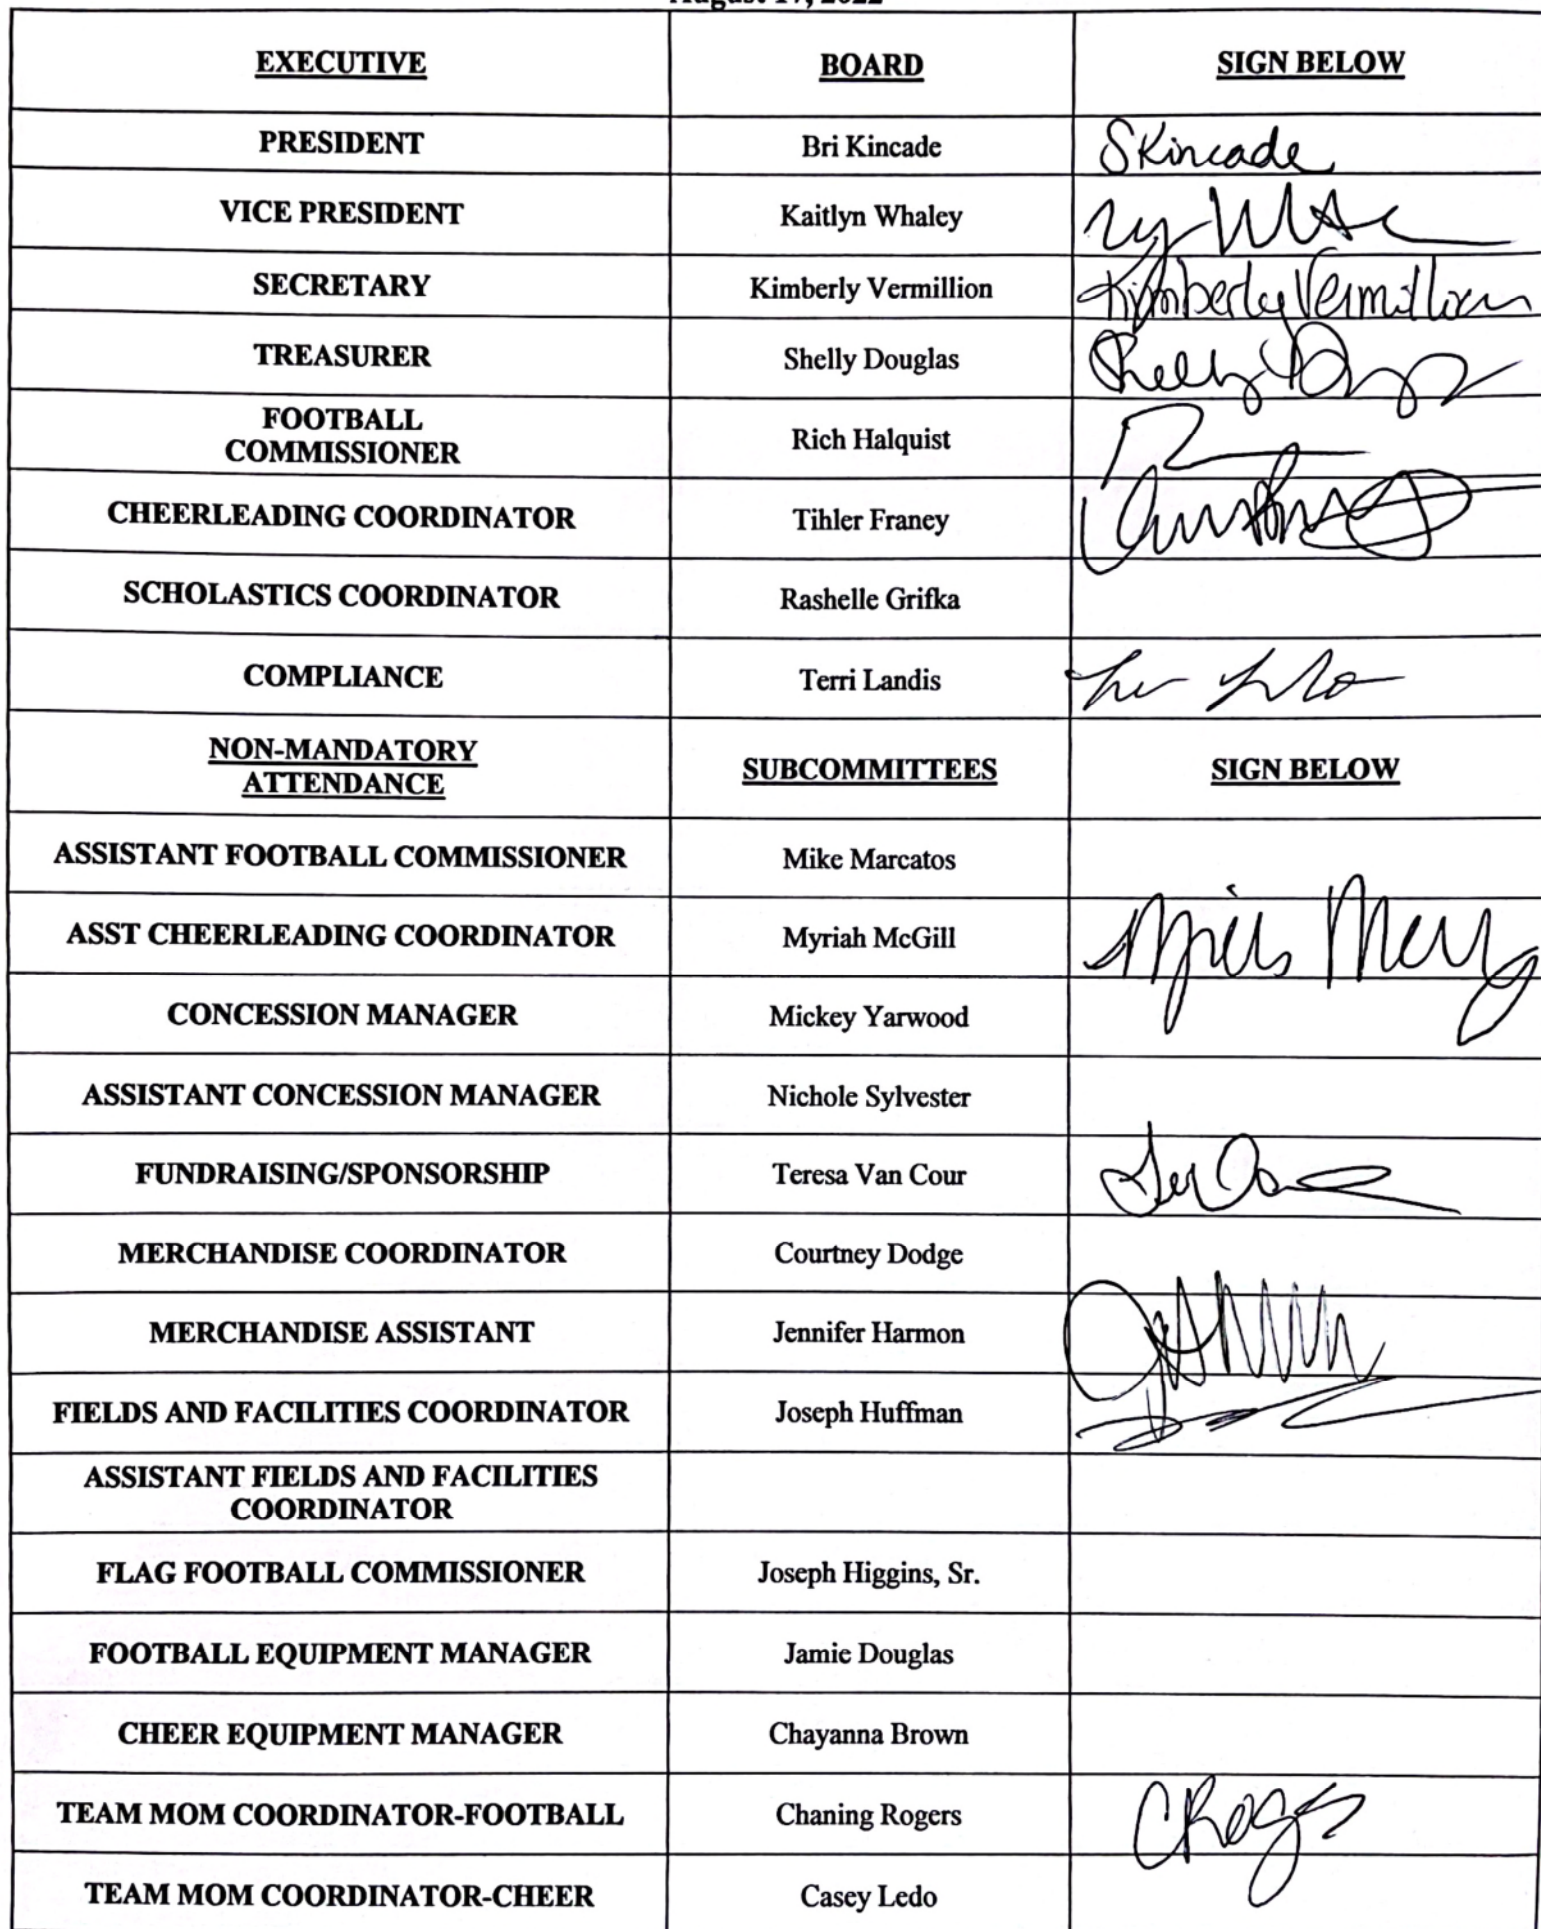 August 17, 2022
EXECUTIVE BOARD SIGN BELOW
PRESIDENT Bri Kincade SKincade
VICE PRESIDENT Kaitlyn Whaley
SECRETARY Kimberly Vermillion Kimberly Vermillion
TREASURER Shelly Douglas Shelly
FOOTBALL
COMMISSIONER Rich Halquist
CHEERLEADING COORDINATOR Tihler Franey
SCHOLASTICS COORDINATOR Rashelle Grifka
COMPLIANCE Terri Landis
NON-MANDATORY
ATTENDANCE SUBCOMMITTEES SIGN BELOW
ASSISTANT FOOTBALL COMMISSIONER Mike Marcatos
ASST CHEERLEADING COORDINATOR Myriah McGill
CONCESSION MANAGER Mickey Yarwood
ASSISTANT CONCESSION MANAGER Nichole Sylvester
FUNDRAISING/SPONSORSHIP Teresa Van Cour
MERCHANDISE COORDINATOR Courtney Dodge
MERCHANDISE ASSISTANT Jennifer Harmon
FIELDS AND FACILITIES COORDINATOR Joseph Huffman
ASSISTANT FIELDS AND FACILITIES
COORDINATOR
FLAG FOOTBALL COMMISSIONER Joseph Higgins, Sr.
FOOTBALL EQUIPMENT MANAGER Jamie Douglas
CHEER EQUIPMENT MANAGER Chayanna Brown
TEAM MOM COORDINATOR-FOOTBALL Chaning Rogers
TEAM MOM COORDINATOR-CHEER Casey Ledo